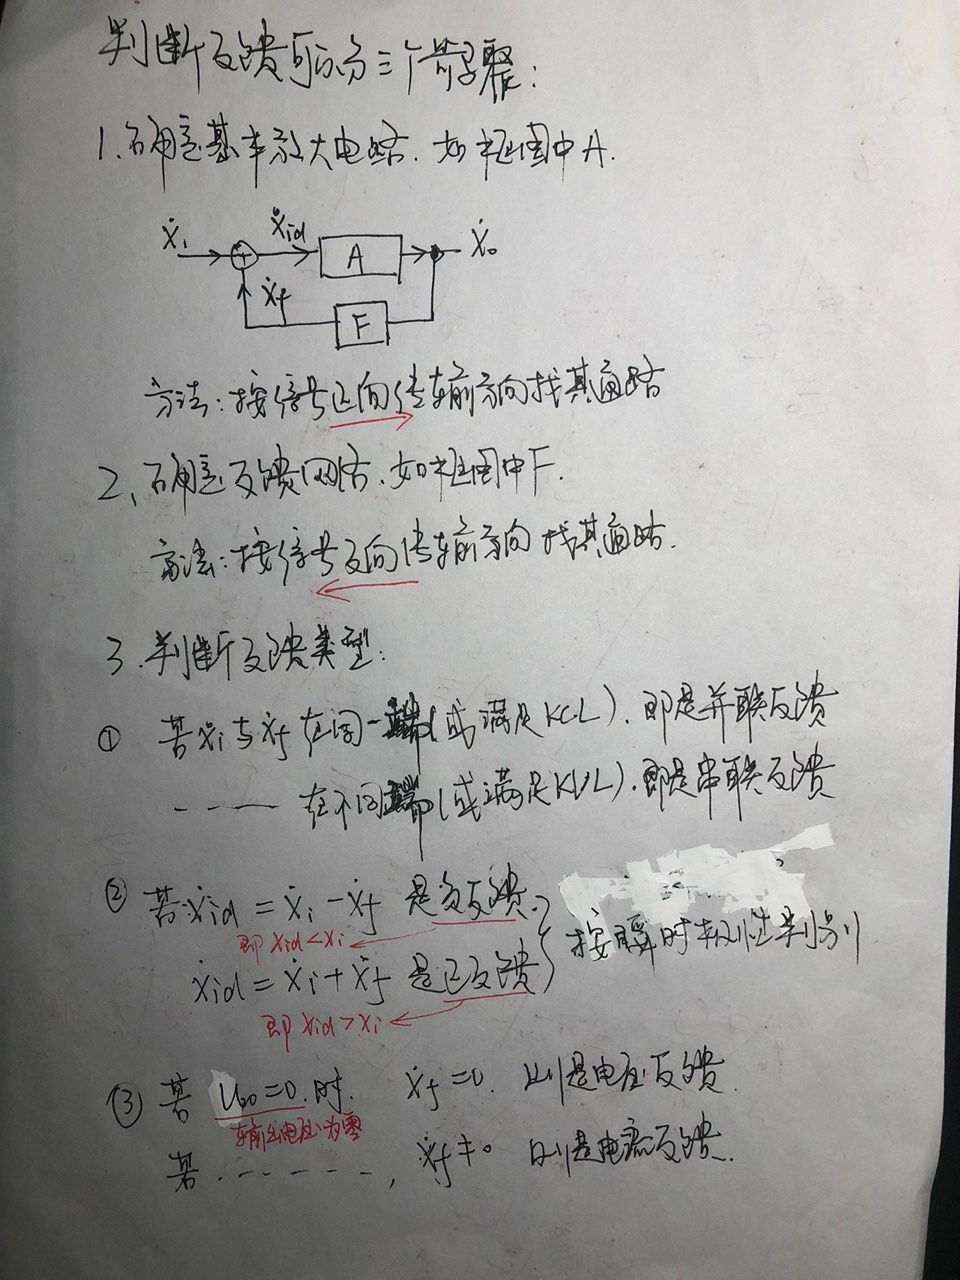 判断反馈可以分三个步骤:
1.确定基本放大电路.如框图中A.
Ẋi Ẋid A Ẋo
+
Ẋf F
方法:按信号正向传输方向找其通路
2、确定反馈网络.如框图中F.
方法:按信号反向传输方向找其通路.
3.判断反馈类型:
① 若Ẋi与Ẋf在同一端(或满足KCL).即是并联反馈
--—— 在不同端(或满足KVL).即是串联反馈
② 若Ẋid = Ẋi - Ẋf 是负反馈.
即Xid<Xi
按瞬时极性判别
Ẋid = Ẋi + Ẋf 是正反馈
即Xid>Xi
③ 若 Uo=0.时. Ẋf=0. 则是电压反馈.
输出电压为零
若.------, Ẋf≠0 则是电流反馈.